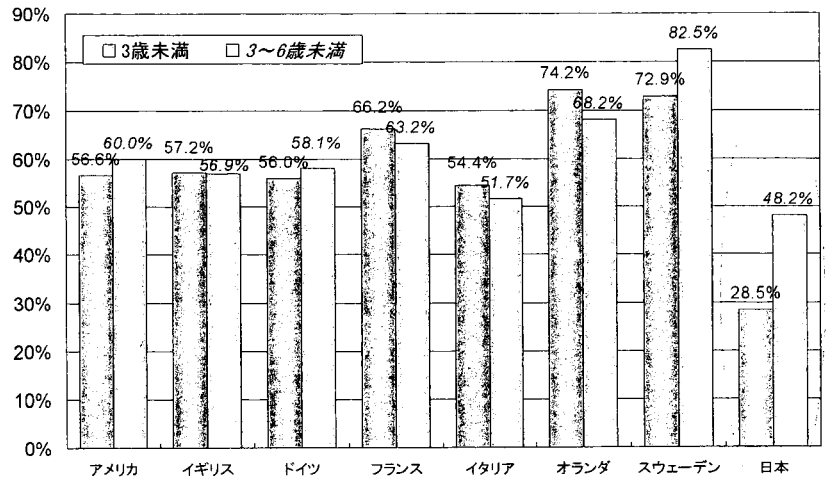 90%
80%
70%
60%
50%
40%
30%
20%
10%
0%
3歳未満 3～6歳未満
56.6% 60.0%
57.2% 56.9%
56.0% 58.1%
66.2% 63.2%
54.4% 51.7%
74.2% 68.2%
72.9% 82.5%
28.5% 48.2%
アメリカ イギリス ドイツ フランス イタリア オランダ スウェーデン 日本